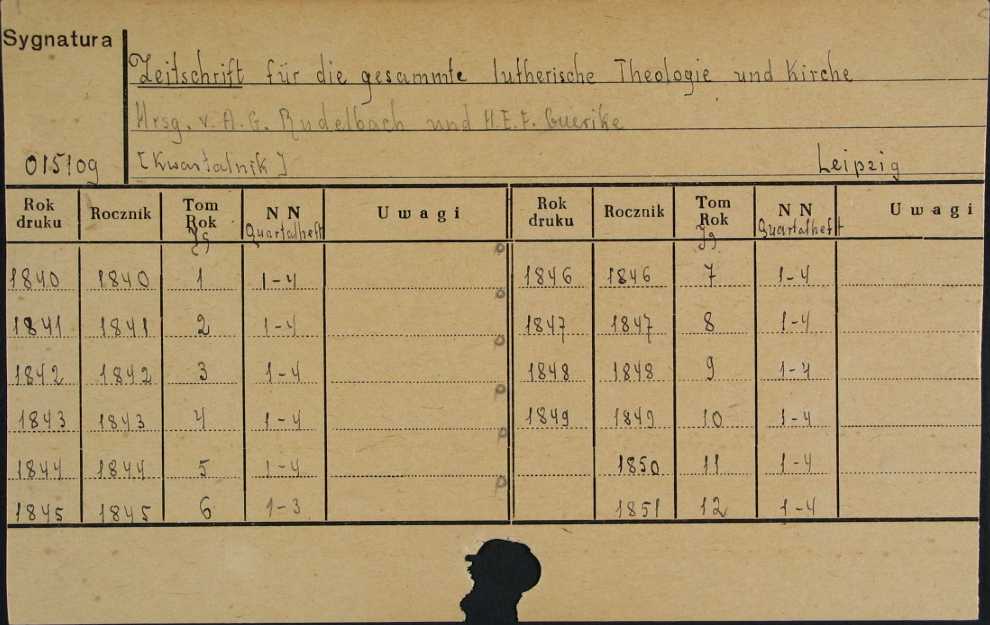 Sygnatura
Zeitschrift für die gesammte lutherische Theologie und Kirche
Hrsg. v. A. G. Rudelbach und H. E. F. Guerike
015109 [Kwartalnik] Leipzig
Rok druku Rocznik Tom Rok Jg NN Quartalheft Uwagi Rok druku Rocznik Tom Rok Jg NN Quartalheft Uwagi
1840 1840 1 1-4 1846 1846 7 1-4
1841 1841 2 1-4 1847 1847 8 1-4
1842 1842 3 1-4 1848 1848 9 1-4
1843 1843 4 1-4 1849 1849 10 1-4
1844 1844 5 1-4 1850 11 1-4
1845 1845 6 1-3 1851 12 1-4